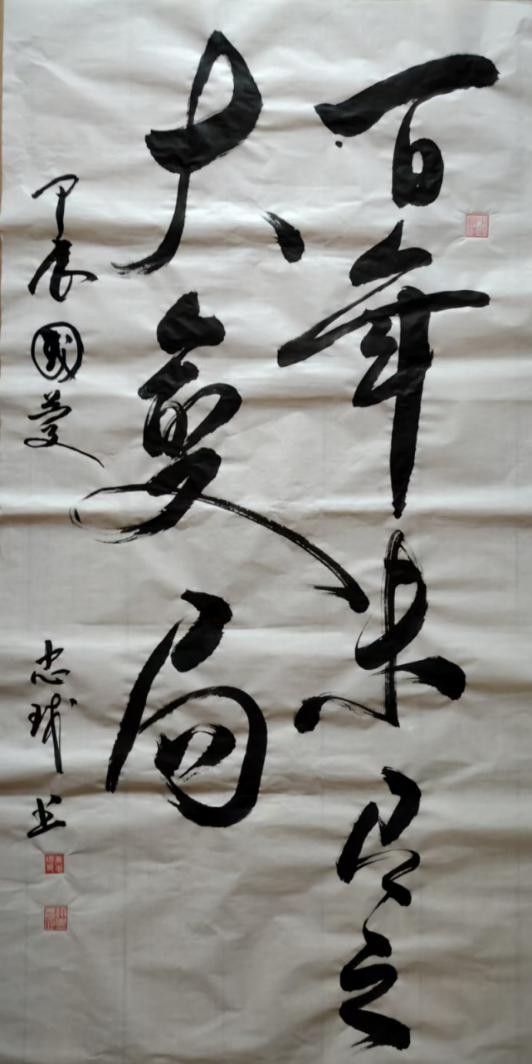 百年未见之
大变局
甲辰国庆
忠球书